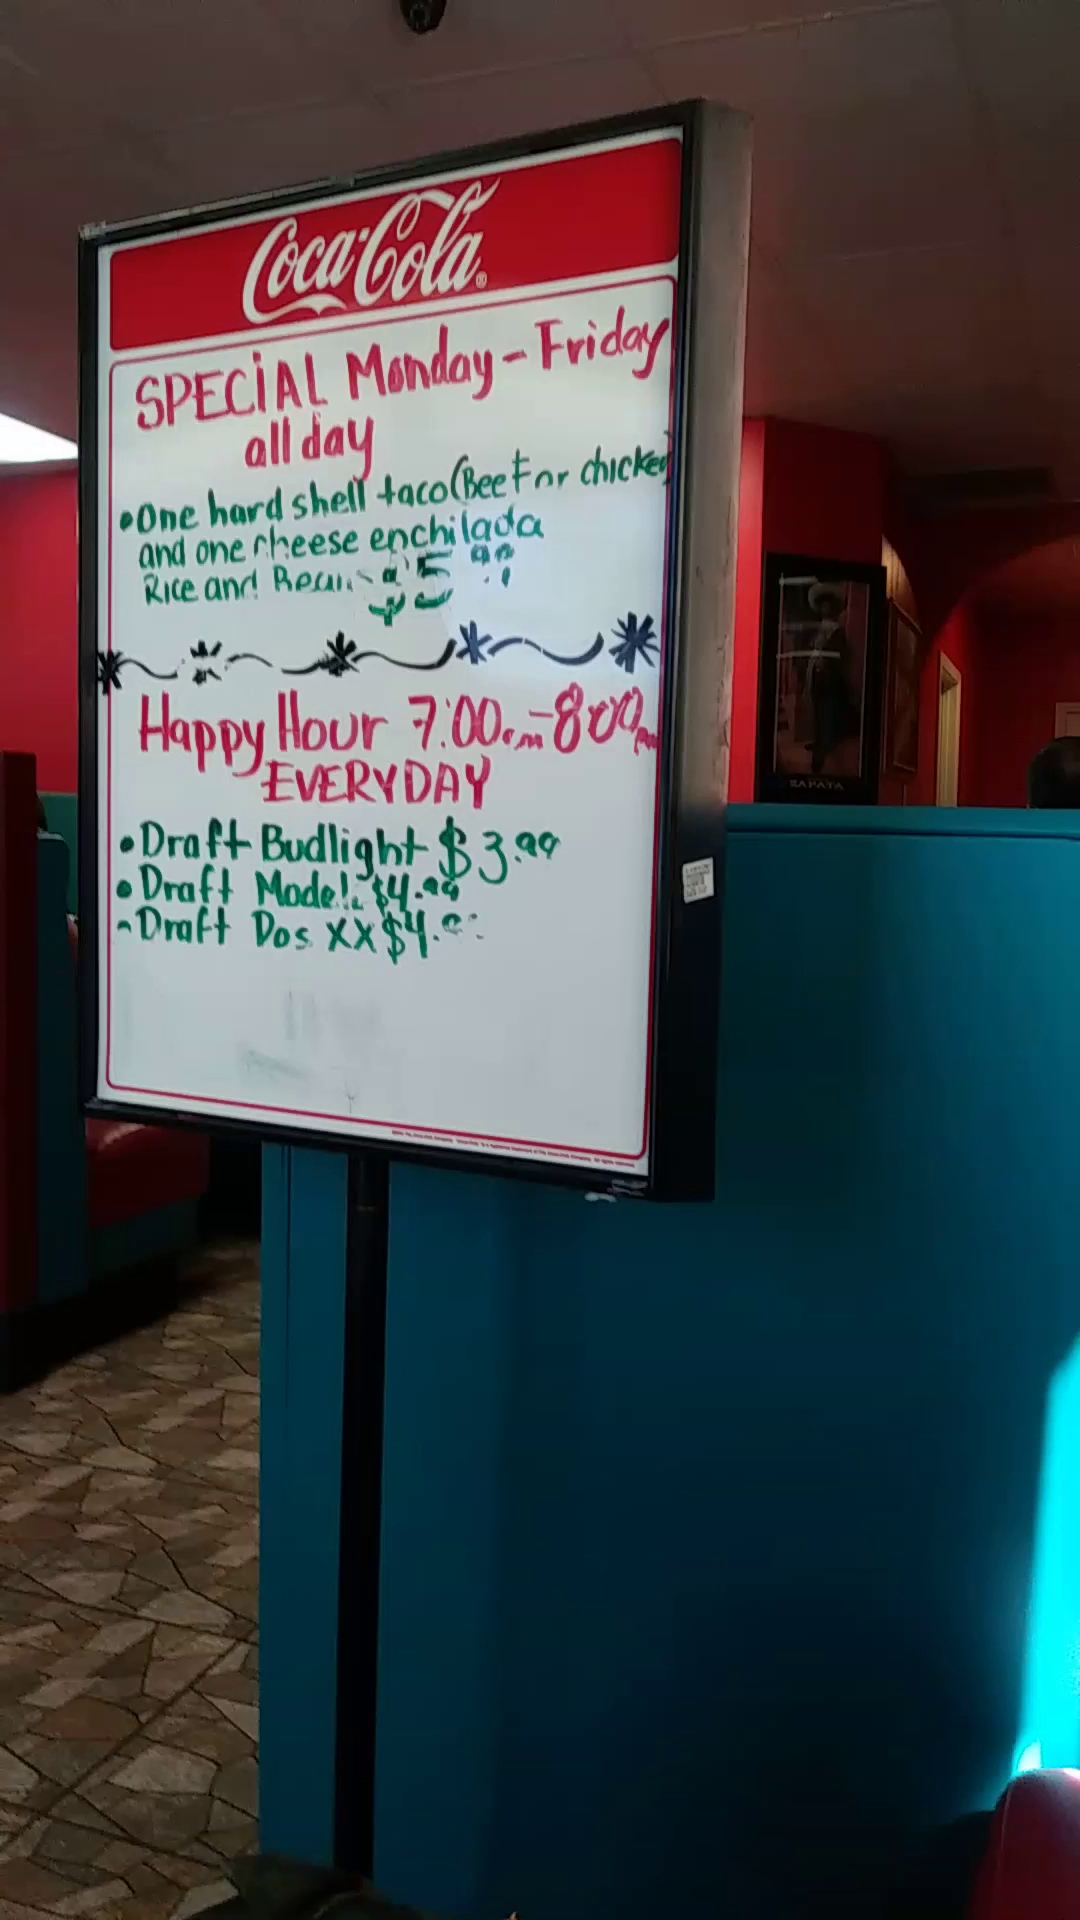 Coca-Cola
SPECIAL Monday - Friday
all day
• One hard shell taco (Beef or chicken
and one cheese enchilada
Rice and Beans $5.99
Happy Hour 7:00 - 8:00pm
EVERYDAY
• Draft Budlight $3.99
• Draft Model. $4.99
- Draft Dos XX $4.
ZAPATA